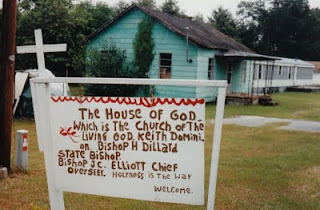 The House of God.
Which is The Church of The
Living God. Keith Domini.
on. Bishop H Dillard
State Bishop.
Bishop J.C. Elliott Chief
Overseer. Holiness is The Way
Welcome.